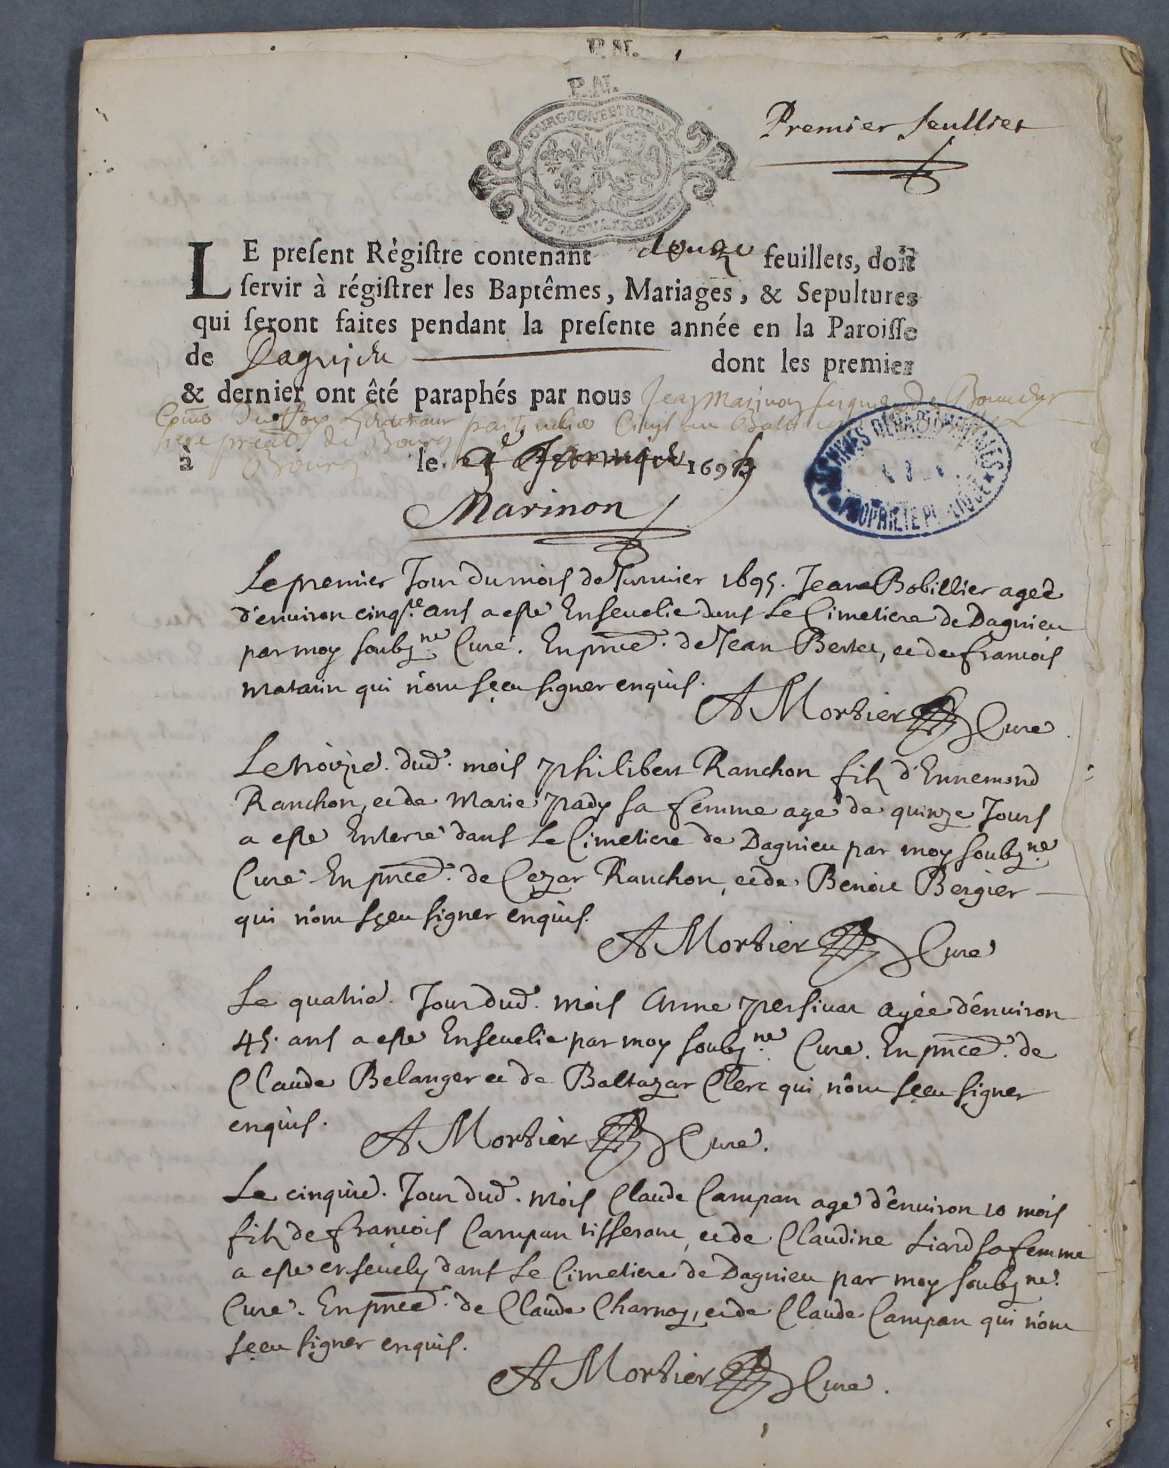 P.N.
P.N.
BOURGOGNE BRESSE
Premier feulliet
LE preſent Régiſtre contenant douze feuillets, doit
ſervir à régiſtrer les Baptêmes, Mariages, & Sepultures
qui ſeront faites pendant la preſente année en la Paroiſſe
de Dagnieu dont les premier
& dernier ont êté paraphés par nous Jean Marinon
Lieutenant particulier Civil
de Bourg
à Bourg le Janvier 1695
Marinon
ARCHIVES DÉPARTEMENTALES
PROPRIÉTÉ PUBLIQUE
Le premier Jour du mois de Janvier 1695. Jeane Bobillier ageé
d'environ cinqte ans a esté Ensevelie dans Le Cimetiere de Dagnieu
par moy soubzne Curé. En pnce de Jean Bertet, et de francois
Matarin qui n'ont sçeu signer enquis.
A Mortier Curé.
Le troizie. dud. mois philibert Ranchon filz d'Ennemond
Ranchon, et de Marie pady sa femme agé de quinze Jours
a esté Enterré dans Le Cimetiere de Dagnieu par moy soubzne
Curé En pnce de Cezar Ranchon, et de Benoit Bergier
qui n'ont sçeu signer enquis.
A Mortier Curé
Le quatrie. Jour dud. mois Anne persivat agée d'environ
45. ans a esté Ensevelie par moy soubzne Curé. En pnce de
Claude Belanger et de Baltazar Clerc qui n'ont sçeu signer
enquis.
A Mortier Curé.
Le cinquie. Jour dud. mois Claude Campan agé d'environ 10 mois
filz de francois Campan tisserant, et de Claudine Liard sa femme
a esté ensevely dans Le Cimetiere de Dagnieu par moy soubzne
Curé. En pnce de Claude Charnoz, et de Claude Campan qui n'ont
sçeu signer enquis.
A Mortier Curé.